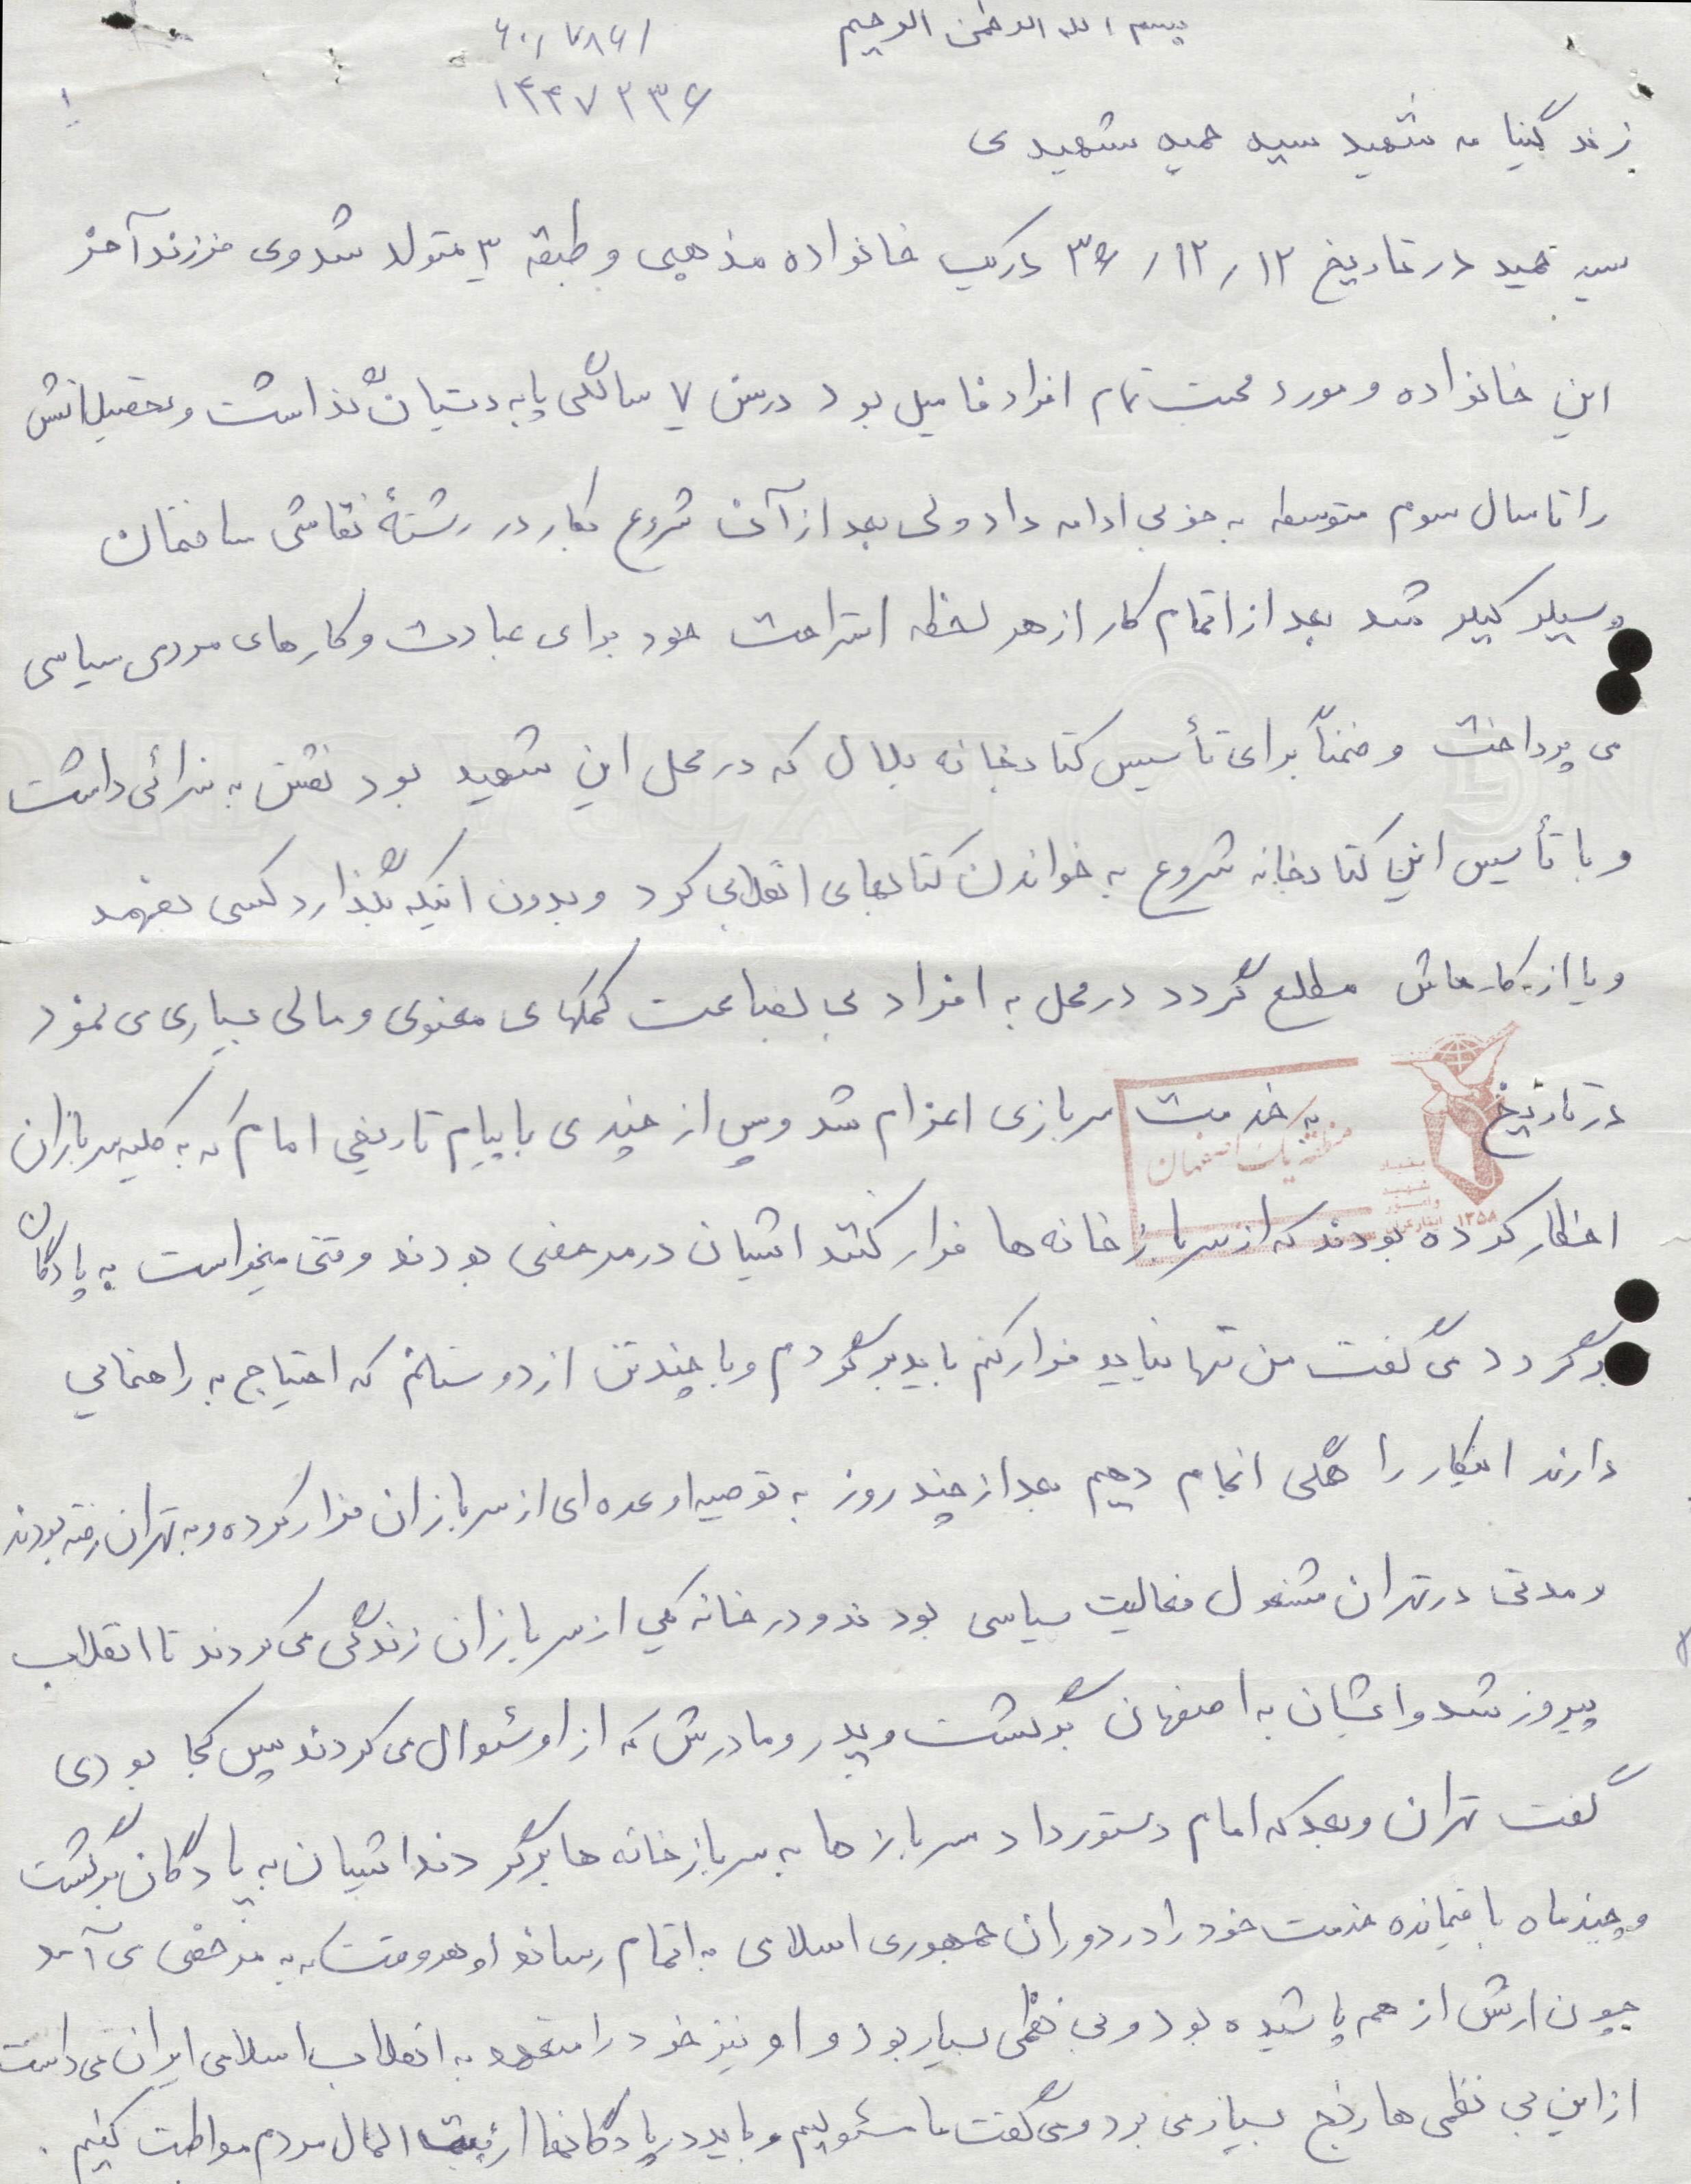 بسم الله الرحمن الرحیم
۶۰۱۷۸۶۱
۱۴۴۷۲۳۶
۱
زندگینامه شهید سید حمید شهیدی
سید حمید در تاریخ ۱۲/۱۲/۳۶ در یک خانواده مذهبی و طبقه ۳ متولد شد وی فرزند آخر
این خانواده و مورد محبت تمام افراد فامیل بود در سن ۷ سالگی پا به دبستان گذاشت و تحصیلاتش
را تا سال سوم متوسطه به خوبی ادامه داد ولی بعد از آن شروع بکار در رشتهٔ نقاشی ساختمان
و شد بعد از اتمام کار از هر لحظه استراحت خود برای عبادت و کارهای مردمی سیاسی
می پرداخت و ضمناً برای تأسیس کتابخانه بلال که در محل این شهید بود نقش به سزائی داشت
و با تأسیس این کتابخانه شروع به خواندن کتابهای انقلابی کرد و بدون اینکه بگذارد کسی بفهمد
و یا از کارهاش مطلع گردد در محل به افراد بی بضاعت کمکهای معنوی و مالی بسیاری می نمود
در تاریخ به خدمت سربازی اعزام شد و پس از چندی با پیام تاریخی امام که به کلیه سربازان
منطقه یک اصفهان
بنیاد شهید و امور ایثارگران
۱۳۵۸
اخطار کرده بودند که از سربازخانه ها فرار کنند ایشان در مرخصی بودند وقتی میخواست به پادگان
برگردد می گفت من تنها نباید فرار کنم باید برگردم و با چند تن از دوستانم که احتیاج به راهنمایی
دارند اینکار را همگی انجام دهیم بعد از چند روز به توصیه او عده ای از سربازان فرار کرده و به تهران رفته بودند
و مدتی در تهران مشغول فعالیت سیاسی بودند و در خانه یکی از سربازان زندگی می کردند تا انقلاب
پیروز شد و ایشان به اصفهان برگشت و پدر و مادرش که از او سئوال می کردند پس کجا بودی
گفت تهران و بعد که امام دستور داد سربازها به سربازخانه ها برگردند ایشان به پادگان برگشت
و چند ماه باقیمانده خدمت خود را در دوران جمهوری اسلامی به اتمام رساند او هر وقت که به مرخصی می آمد
چون ارتش از هم پاشیده بود و بی نظمی بسیار بود و او نیز خود را متعهد به انقلاب اسلامی ایران می دانست
از این بی نظمی ها رنج بسیار می برد و می گفت ما مسئولیم و باید در پادگانها از بیت المال مردم مواظبت کنیم .